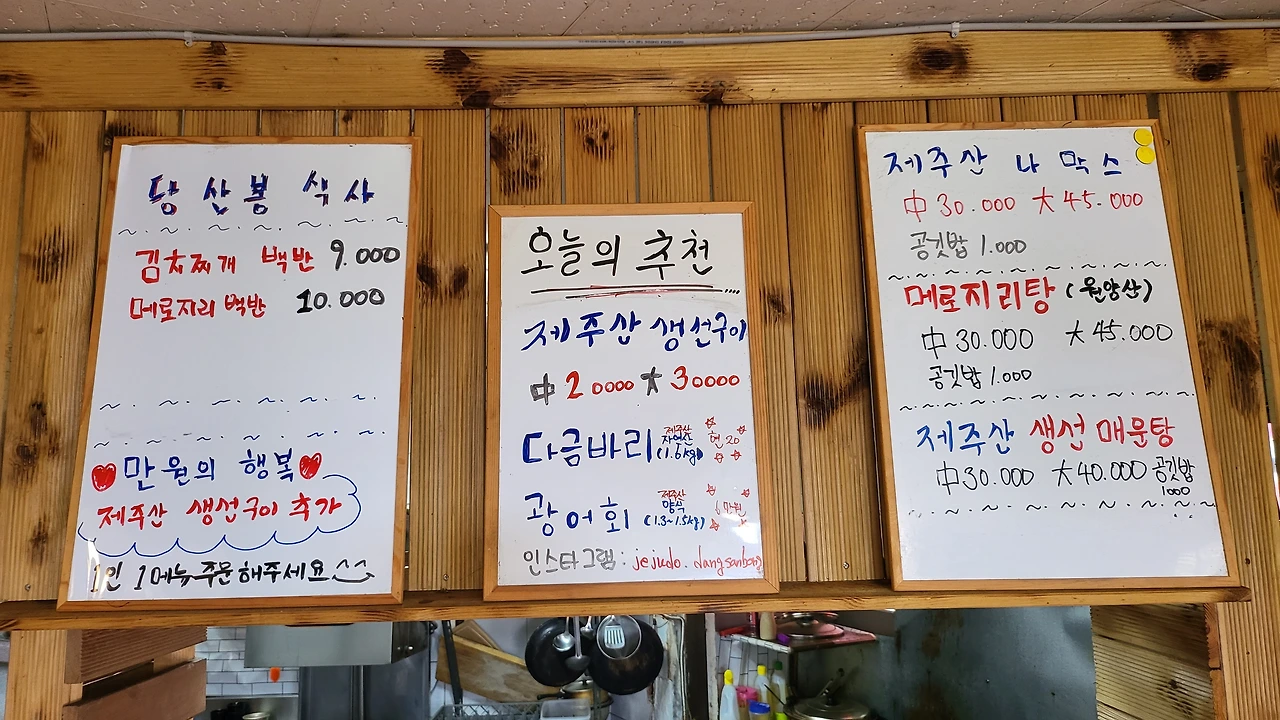 당산봉 식사
김치찌개 백반 9.000
메로지리 백반 10.000
만원의 행복
제주산 생선구이 추가
1인 1메뉴 주문해주세요 ^^
오늘의 추천
제주산 생선구이
中 20000 大 30000
다금바리 제주산 자연산 (1.6kg)
광어회 제주산 양식 (1.3~1.5kg) 6만원
인스타그램 : jejudo.dangsanbong
제주산 나막스
中 30.000 大 45.000
공깃밥 1.000
메로지리탕 (원양산)
中 30.000 大 45.000
공깃밥 1.000
제주산 생선 매운탕
中 30.000 大 40.000 공깃밥
1000